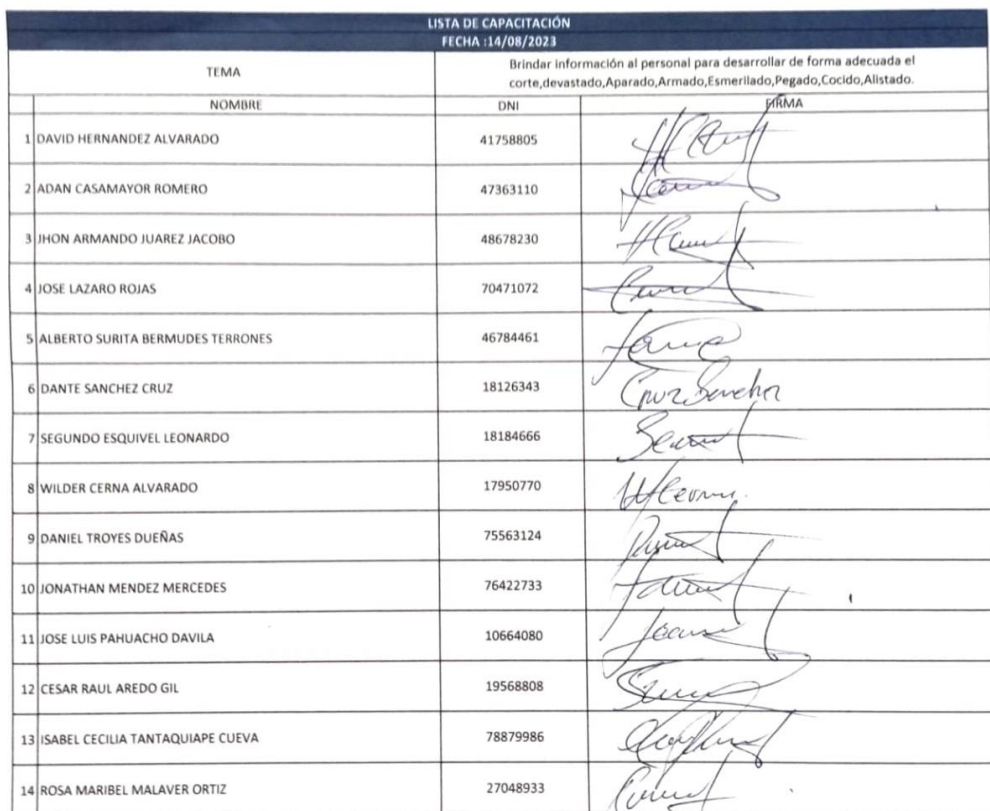 LISTA DE CAPACITACIÓN
FECHA :14/08/2023
TEMA
Brindar información al personal para desarrollar de forma adecuada el
corte,devastado,Aparado,Armado,Esmerilado,Pegado,Cocido,Alistado.
NOMBRE DNI FIRMA
1 DAVID HERNANDEZ ALVARADO 41758805
2 ADAN CASAMAYOR ROMERO 47363110
3 JHON ARMANDO JUAREZ JACOBO 48678230
4 JOSE LAZARO ROJAS 70471072
5 ALBERTO SURITA BERMUDES TERRONES 46784461
6 DANTE SANCHEZ CRUZ 18126343
7 SEGUNDO ESQUIVEL LEONARDO 18184666
8 WILDER CERNA ALVARADO 17950770
9 DANIEL TROYES DUEÑAS 75563124
10 JONATHAN MENDEZ MERCEDES 76422733
11 JOSE LUIS PAHUACHO DAVILA 10664080
12 CESAR RAUL AREDO GIL 19568808
13 ISABEL CECILIA TANTAQUIAPE CUEVA 78879986
14 ROSA MARIBEL MALAVER ORTIZ 27048933